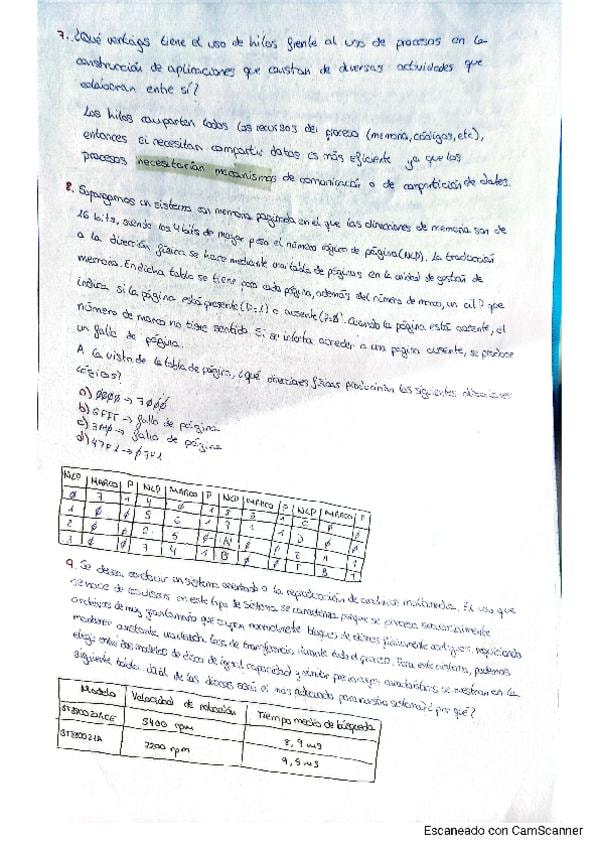 7. ¿Qué ventajas tiene el uso de hilos frente al uso de procesos en la
construcción de aplicaciones que constan de diversas actividades que
colaboran entre sí?
Los hilos comparten todos los recursos del proceso (memoria, códigos, etc),
entonces si necesitan compartir datos es más eficiente ya que los
procesos necesitarían mecanismos de comunicación o de compartición de datos.
8. Supongamos un sistema con memoria paginada en el que las direcciones de memoria son de
16 bits, siendo los 4 bits de mayor peso el número lógico de página (NLP). La traducción
a la dirección física se hace mediante una tabla de páginas en la unidad de gestión de
memoria. En dicha tabla se tiene para cada página, además del número de marco, un bit P que
indica si la página está presente (P=1) o ausente (P=0). Cuando la página está ausente, el
número de marco no tiene sentido. Si se intenta acceder a una página ausente, se produce
un fallo de página.
A la vista de la tabla de página, ¿qué direcciones físicas producirán las siguientes direcciones
lógicas?
a) 0000 → 7000
b) 6FFF → fallo de página
c) → fallo de página
d) 47F1 → 07F1
NLP MARCO P NLP MARCO P NLP MARCO P NLP MARCO P
0 7 1 4 0 1 8
1 0 0 5 6 1
2 0 0 5 0 A
3 0 0 7 4 1 B 0 0 F B 1
9. Se desea construir un sistema orientado a la reproducción de contenidos multimedia. El uso que
se hace de los discos en este tipo de sistema se caracteriza porque se procesan secuencialmente
archivos de muy gran tamaño que ocupan normalmente bloques de discos físicamente contiguos,
mantener constante una elevada tasa de transferencia durante todo el proceso. Para este sistema, podemos
elegir entre dos modelos de disco de igual capacidad y similar precio cuyas características se muestran en la
siguiente tabla. ¿Cuál de los discos sería el más adecuado para nuestro sistema? ¿por qué?
Modelo Velocidad de rotación Tiempo medio de búsqueda
5400 rpm 8,9 ms
7200 rpm 9,5 ms
Escaneado con CamScanner